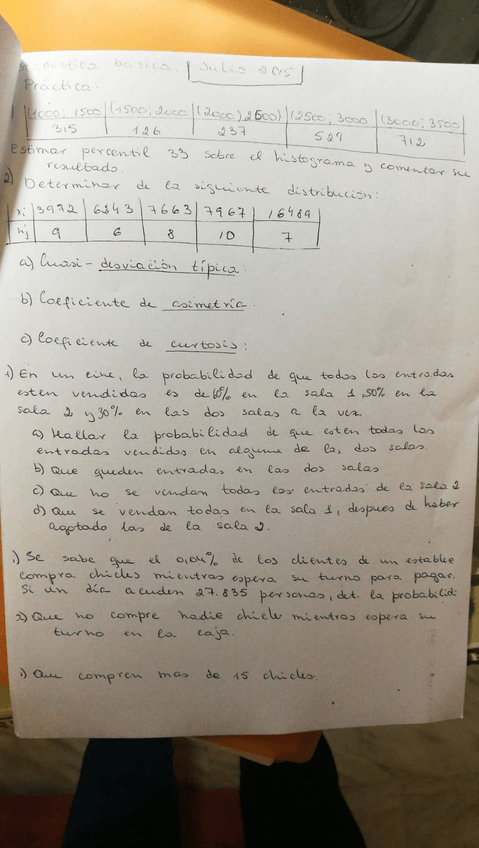 básica. Julio 2015
Práctica:
(1000; 1500 (1500; 2000 (2000; 2500) (2500; 3000 (3000; 3500)
315 126 237 529 712
Estimar percentil 33 sobre el histograma y comentar su
resultado.
2) Determinar de la siguiente distribución:
xi 3972 6243 7663 7967 16489
nj 9 6 8 10 7
a) Cuasi-desviación típica:
b) Coeficiente de asimetría:
c) Coeficiente de curtosis:
1) En un cine, la probabilidad de que todas las entradas
esten vendidas es de % en la sala 1, 50% en la
sala 2 y 30% en las dos salas a la vez.
a) Hallar la probabilidad de que esten todas las
entradas vendidas en alguna de las dos salas.
b) Que queden entradas en las dos salas
c) Que no se vendan todas las entradas de la sala 2
d) Que se vendan todas en la sala 1, despues de haber
agotado las de la sala 2.
) Se sabe que el 0,04% de los clientes de un estable
compra chicles mientras espera su turno para pagar.
Si un día acuden 27.835 personas, det. la probabilid:
) Que no compre nadie chicle mientras espera su
turno en la caja.
) Que compren mas de 15 chicles.